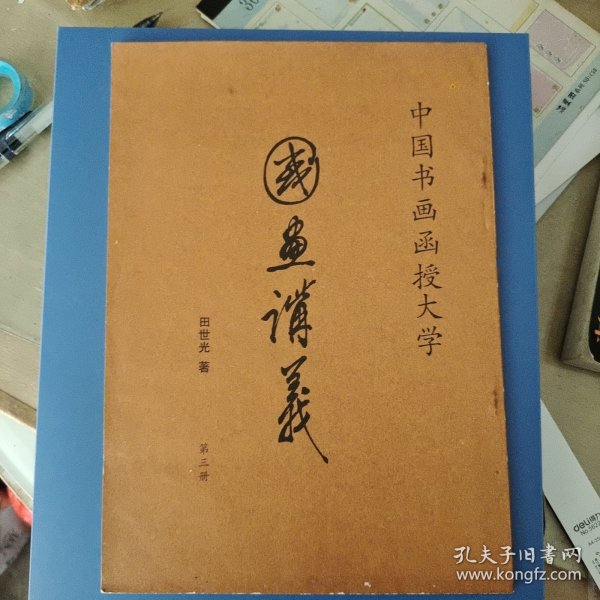 中国书画函授大学
國畫講義
田世光 著
第三册
deli得力
孔夫子旧书网
www.kongfz.com